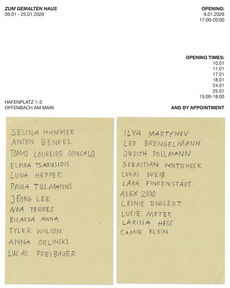 ZUM GEMALTEN HAUS
09.01 - 25.01.2026
OPENING:
9.01.2026
17:00-20:00
OPENING TIMES:
10.01
11.01
17.01
18.01
24.01
25.01
15:00-18:00
HAFENPLATZ 1-3
OFFENBACH AM MAIN
AND BY APPOINTMENT
SELINA HAMMER
ANTON BENKEL
TOMAS LOUREIRO GONCALO
ELPIDA TSAUSIDIS
LUNA HEPPER
PAULA TILLMANNS
JEONG LEE
NOA TORRES
RICARDA ANNA
TYLER WILSON
ANNA ORLINSKI
LUCAS FREIBAUER
ILYA MARTYNOV
LEO BRENGELMANN
JUDITH POLLMANN
SEBASTIAN
LUCAS WEIß
LARA FINKENSTÄDT
ALEX ZIDO
LEONIE ENGLERT
LUCIE MEYER
LARISSA HESS
CAMIE KLEIN